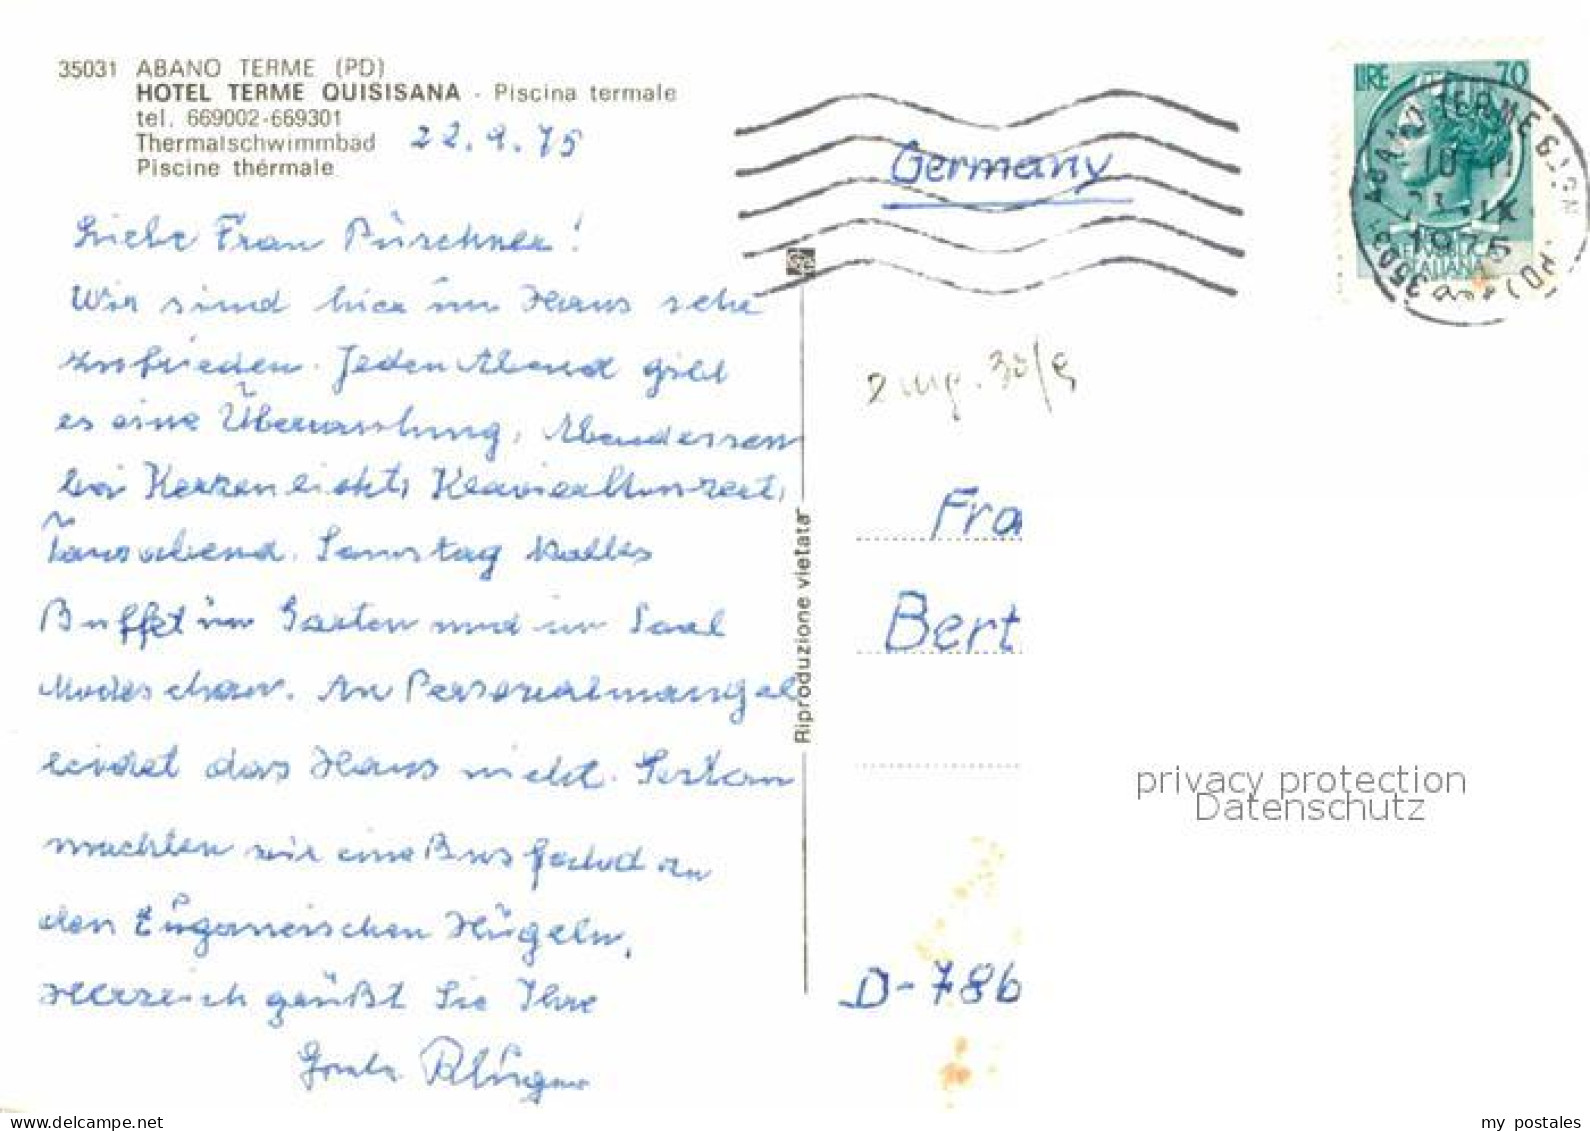 35031 ABANO TERME (PD)
HOTEL TERME QUISISANA - Piscina termale
tel. 669002-669301
Thermalschwimmbad
Piscine thérmale
22.9.75
Liebe Frau Pürschner!
Wir sind hier im Haus sehr
zufrieden. Jeden Abend gibt
es eine Überraschung, Abendessen
bei Kerzenlicht, Klavierkonzert,
Tanzabend. Samstag kaltes
Buffet im Garten und im Saal
Modeschau. An Personalmangel
leidet das Haus nicht. Gestern
machten wir eine Busfahrt zu
den Euganeischen Hügeln.
Herzlich grüßt Sie Ihre
Germany
LIRE 70
ABANO TERME
10-11
1975
REPUBBLICA
ITALIANA
Riproduzione vietata
30/9
Fra
Bert
D-786
privacy protection
Datenschutz
www.delcampe.net
my_postales